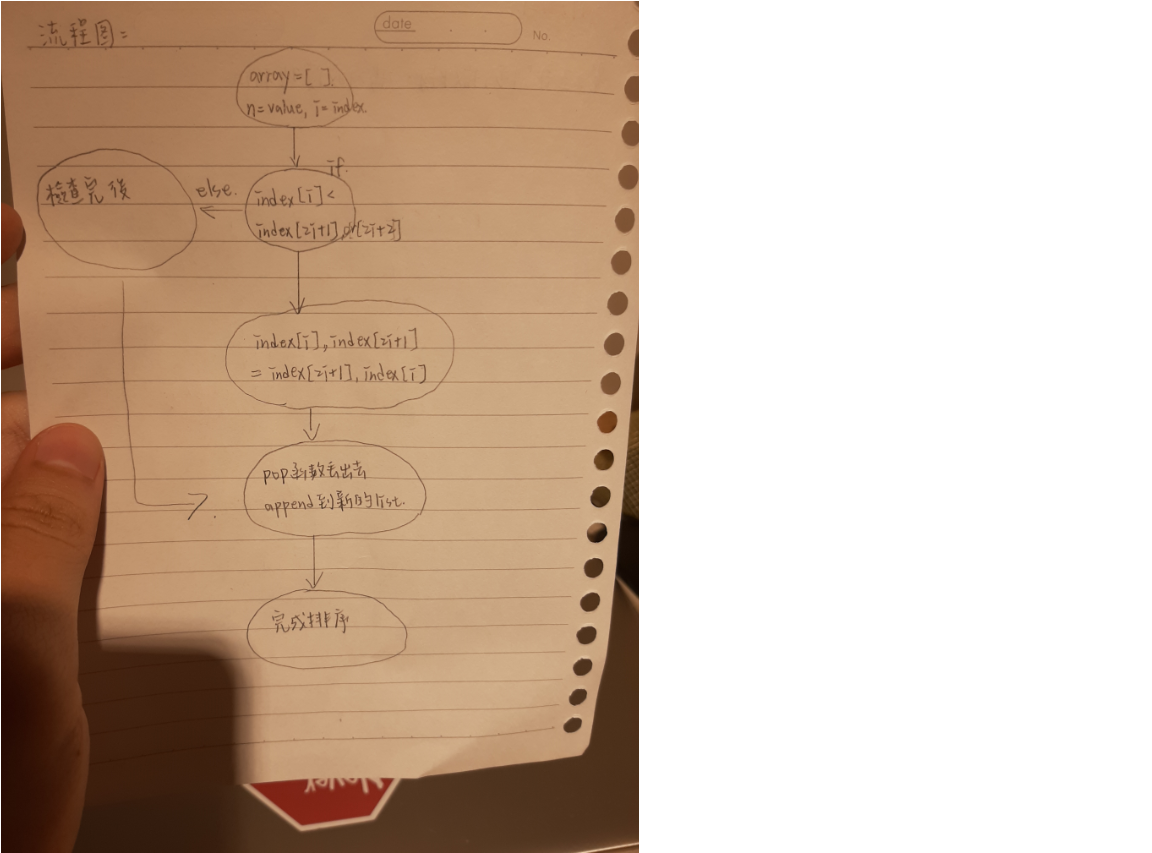 流程图:
date
No.
array=[ ]
n=value, i=index
if
index[i]<
index[2i+1] or [2i+2]
else.
檢查完後
index[i], index[2i+1]
= index[2i+1], index[i]
pop函数丢出去
append到新的list.
完成排序
Never